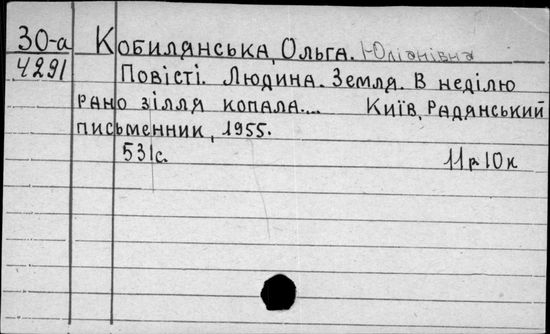 30-а Кобилянська, Ольга. Юліанівна
4291 Повісті. Людина. Земля. В неділю
рано зілля копала.... Київ, Радянський
письменник, 1955.
531с. 11р 10к